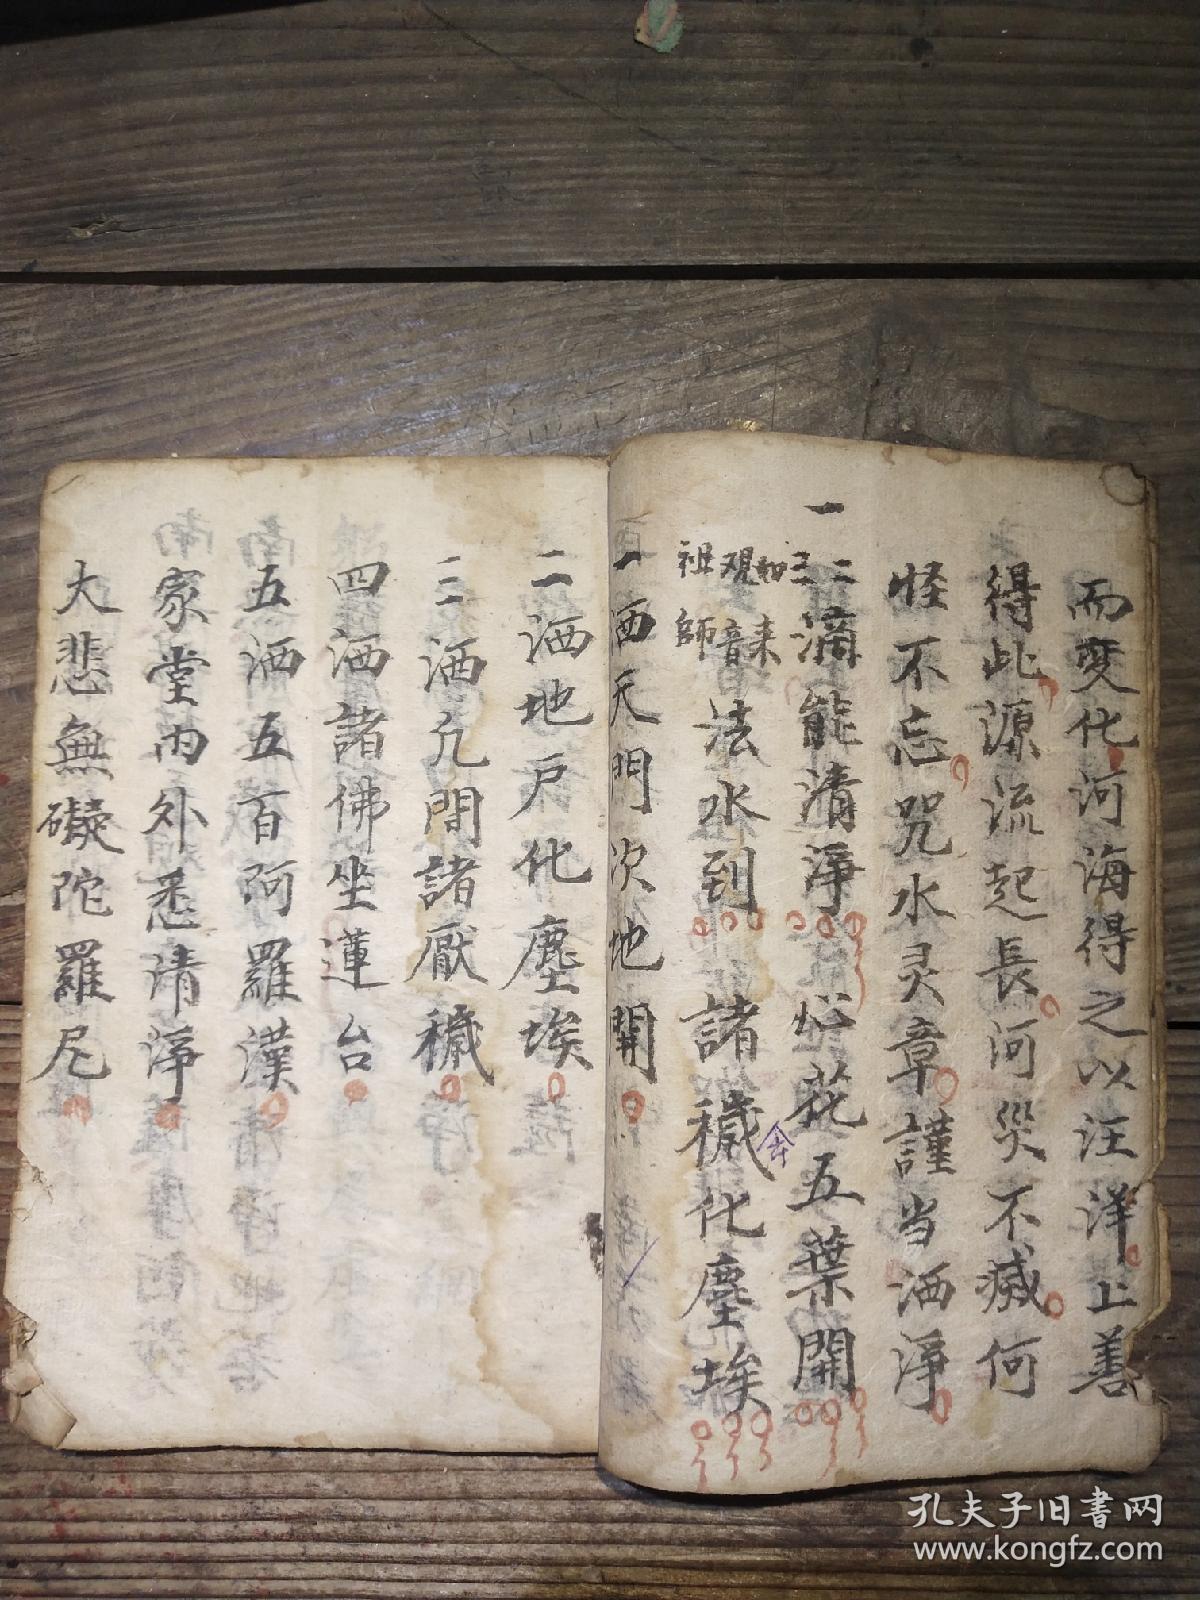 而变化河海得之以汪洋上善
得此源流起長河災不滅何
怪不忘咒水灵章謹当洒淨
一二三滴能清淨 心花五葉開
如来 观音 祖師 法水到 諸穢化塵埃
一洒天門次地開
二洒地戸化塵埃
三洒凢間諸厭穢
四洒諸佛坐蓮台
五洒五百阿羅漢
家堂内外悉清淨
大悲無礙陀羅尼
孔夫子旧书网
www.kongfz.com